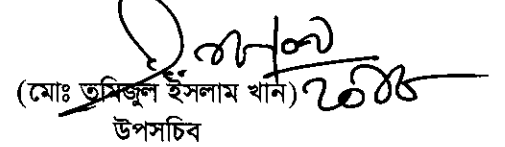 (মোঃ তমিজুল ইসলাম খান)
উপসচিব